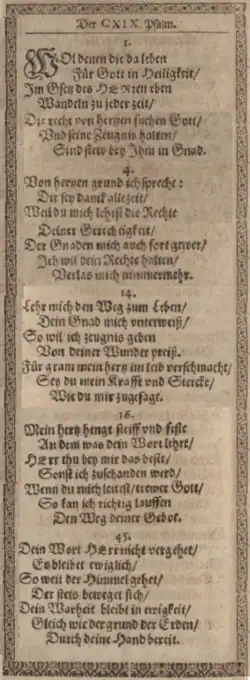 Der CXIX. Psalm.
1.
WOl denen die da leben
Für Gott in Heiligkeit/
Im Gsetz des HERren eben
Wandeln zu jeder zeit/
Die recht von hertzen suchen Gott/
Vnd seine Zeugnis halten/
Sind stets bey Ihm in Gnad.
4.
Von hertzen grund ich spreche:
Dir sey danck allezeit/
Weil du mich lehrst die Rechte
Deiner Gerechtigkeit/
Der Gnaden mich auch fort gewer/
Ich wil dein Rechte halten/
Verlas mich nimmermehr.
14.
Lehr mich den Weg zum Leben/
Dein Gnad mich vnterweiß/
So wil ich zeugnis geben
Von deiner Wunder preiß.
Für gram mein hertz im leib verschmacht/
Sey du mein Krafft vnd Stercke/
Wie du mir zugesagt.
16.
Mein hertz hengt steiff vnd feste
An dem was dein Wort lehrt/
HErr thu bey mir das beste/
Sonst ich zuschanden werd/
Wenn du mich leitest/ trewer Gott/
So kan ich richtig lauffen
Den Weg deiner Gebot.
45.
Dein Wort HErr nicht vergehet/
Es bleibet ewiglich/
So weit der Himmel gehet/
Der stets beweget sich/
Dein Warheit bleibt in ewigkeit/
Gleich wie der grund der Erden/
Durch deine Hand bereit.